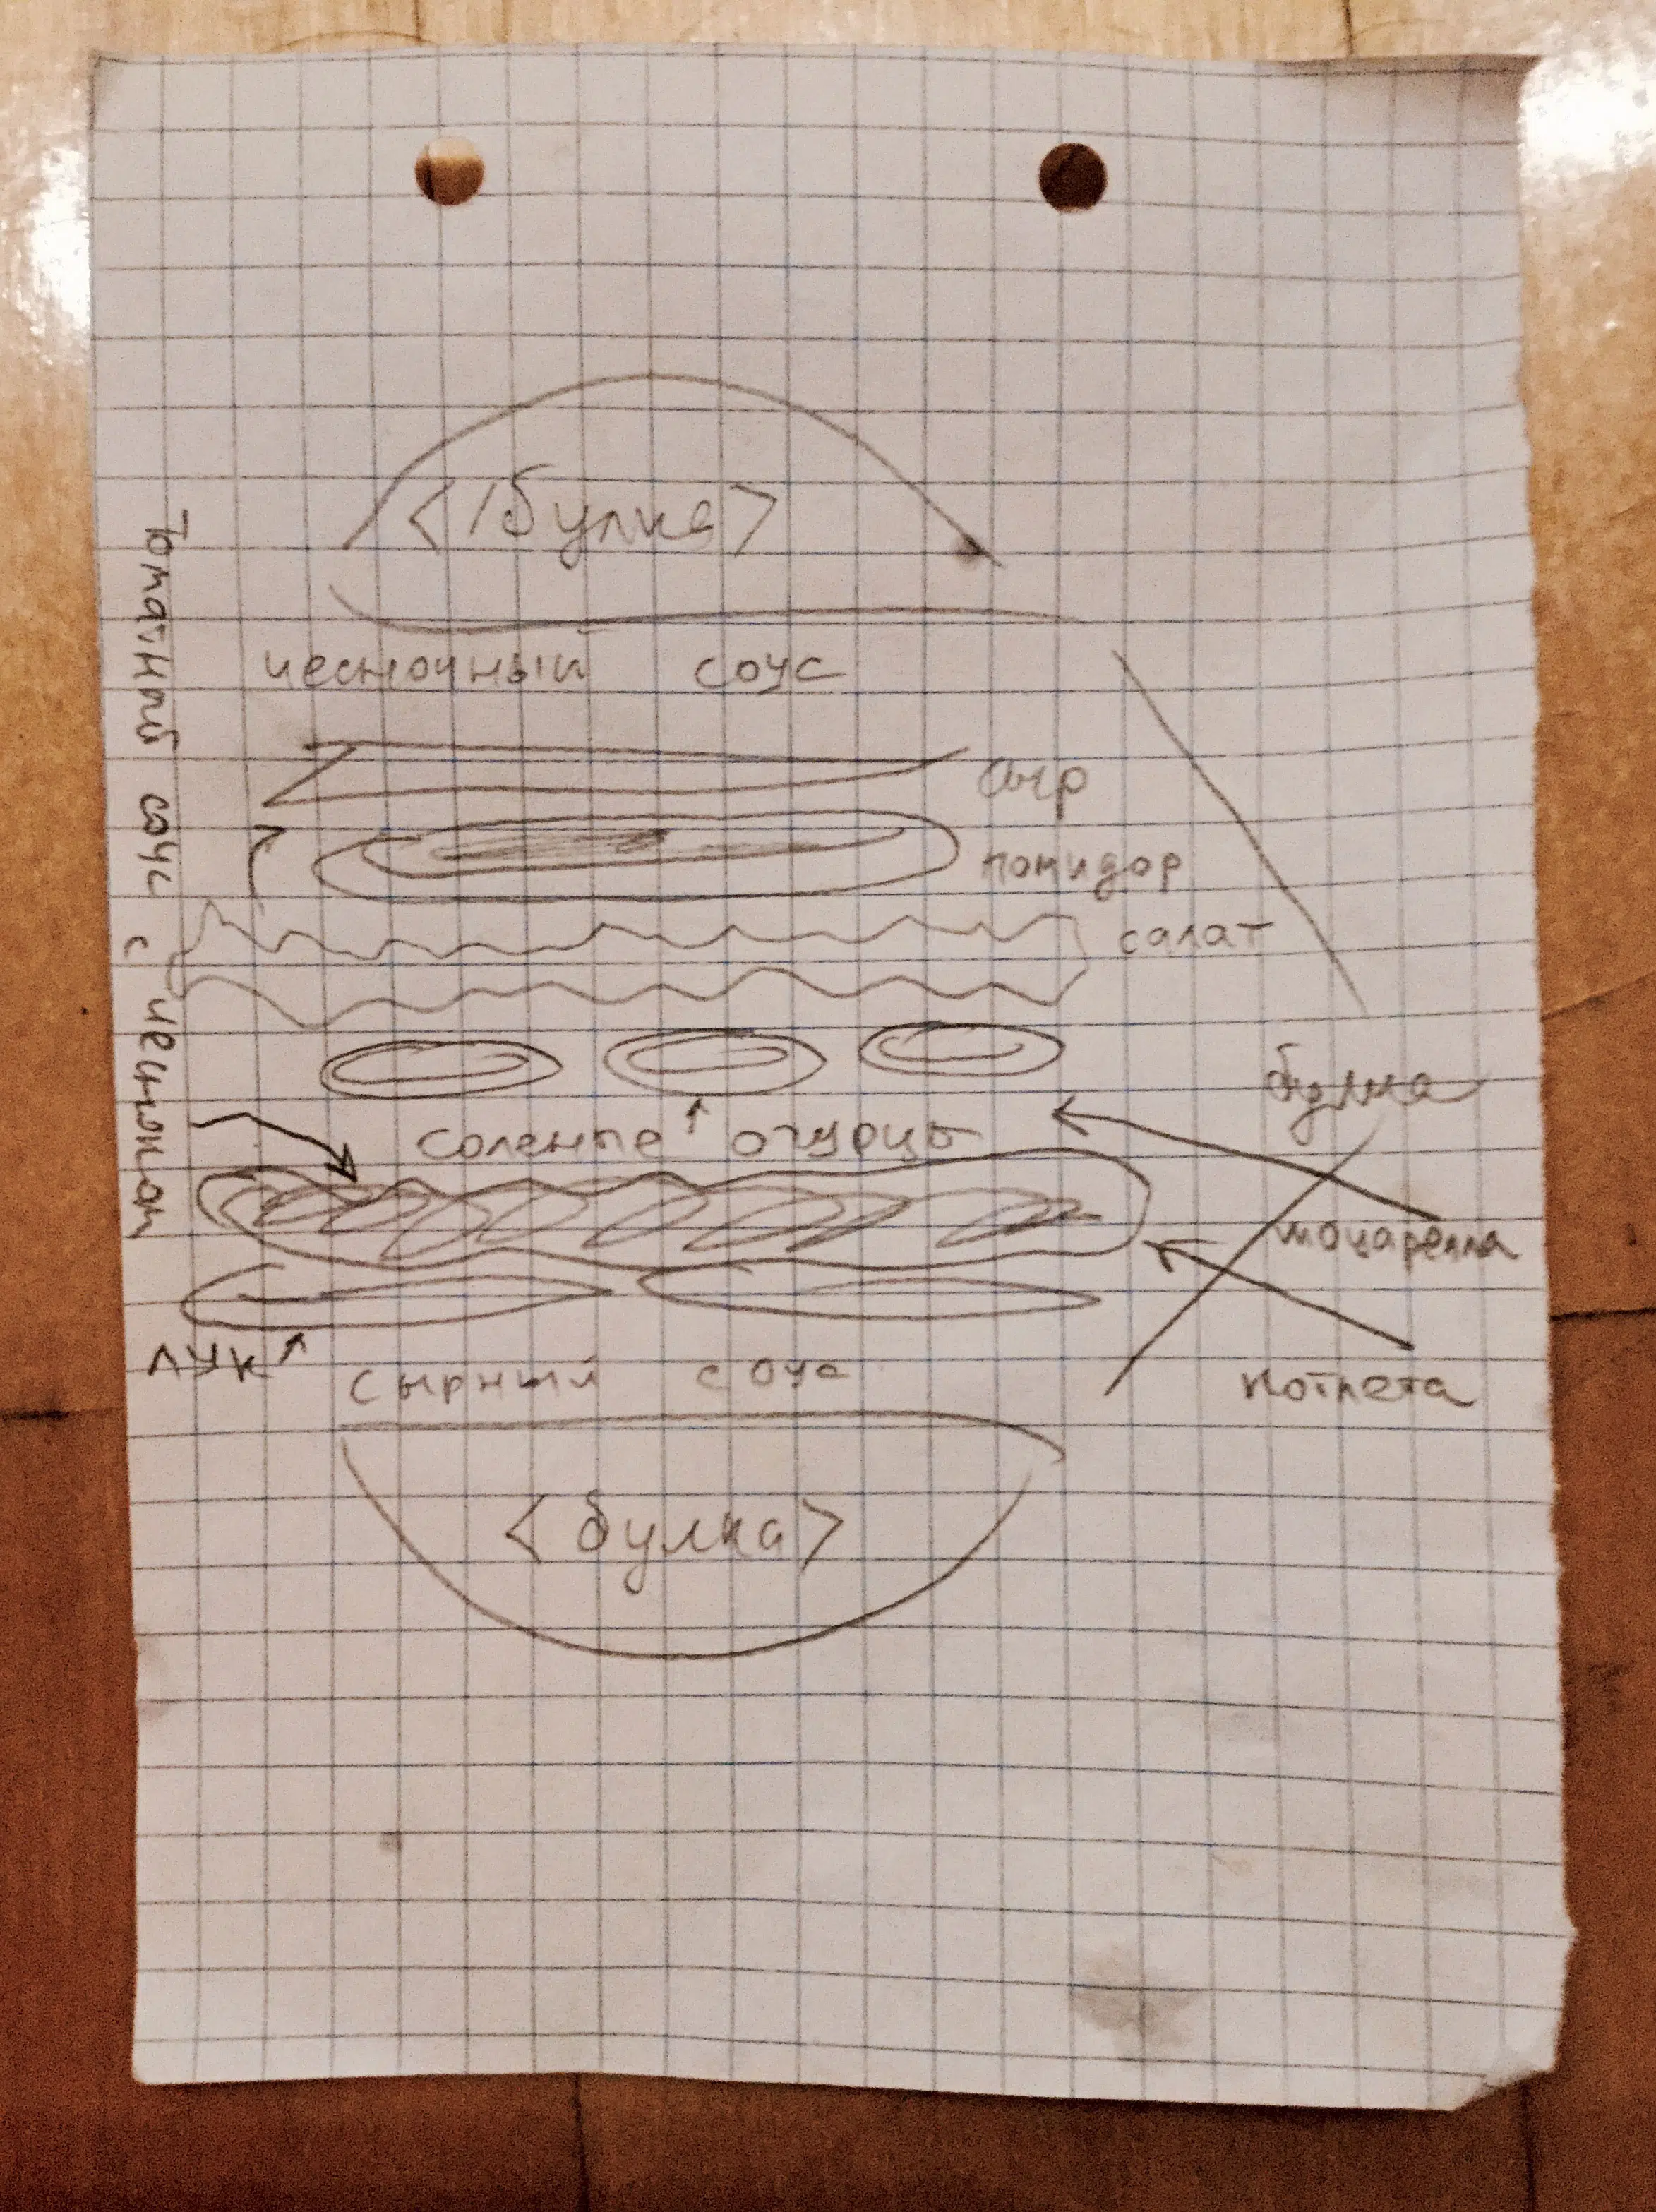 <булка>
чесночный соус
сыр
помидор
салат
булка
соленые огурцы
моцарелла
котлета
лук
сырный соус
<булка>
Томатный соус с чесноком